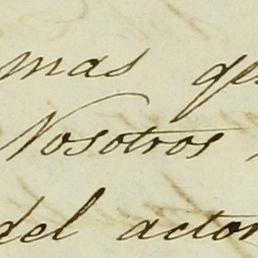 mas ge
Nosotros
del actor